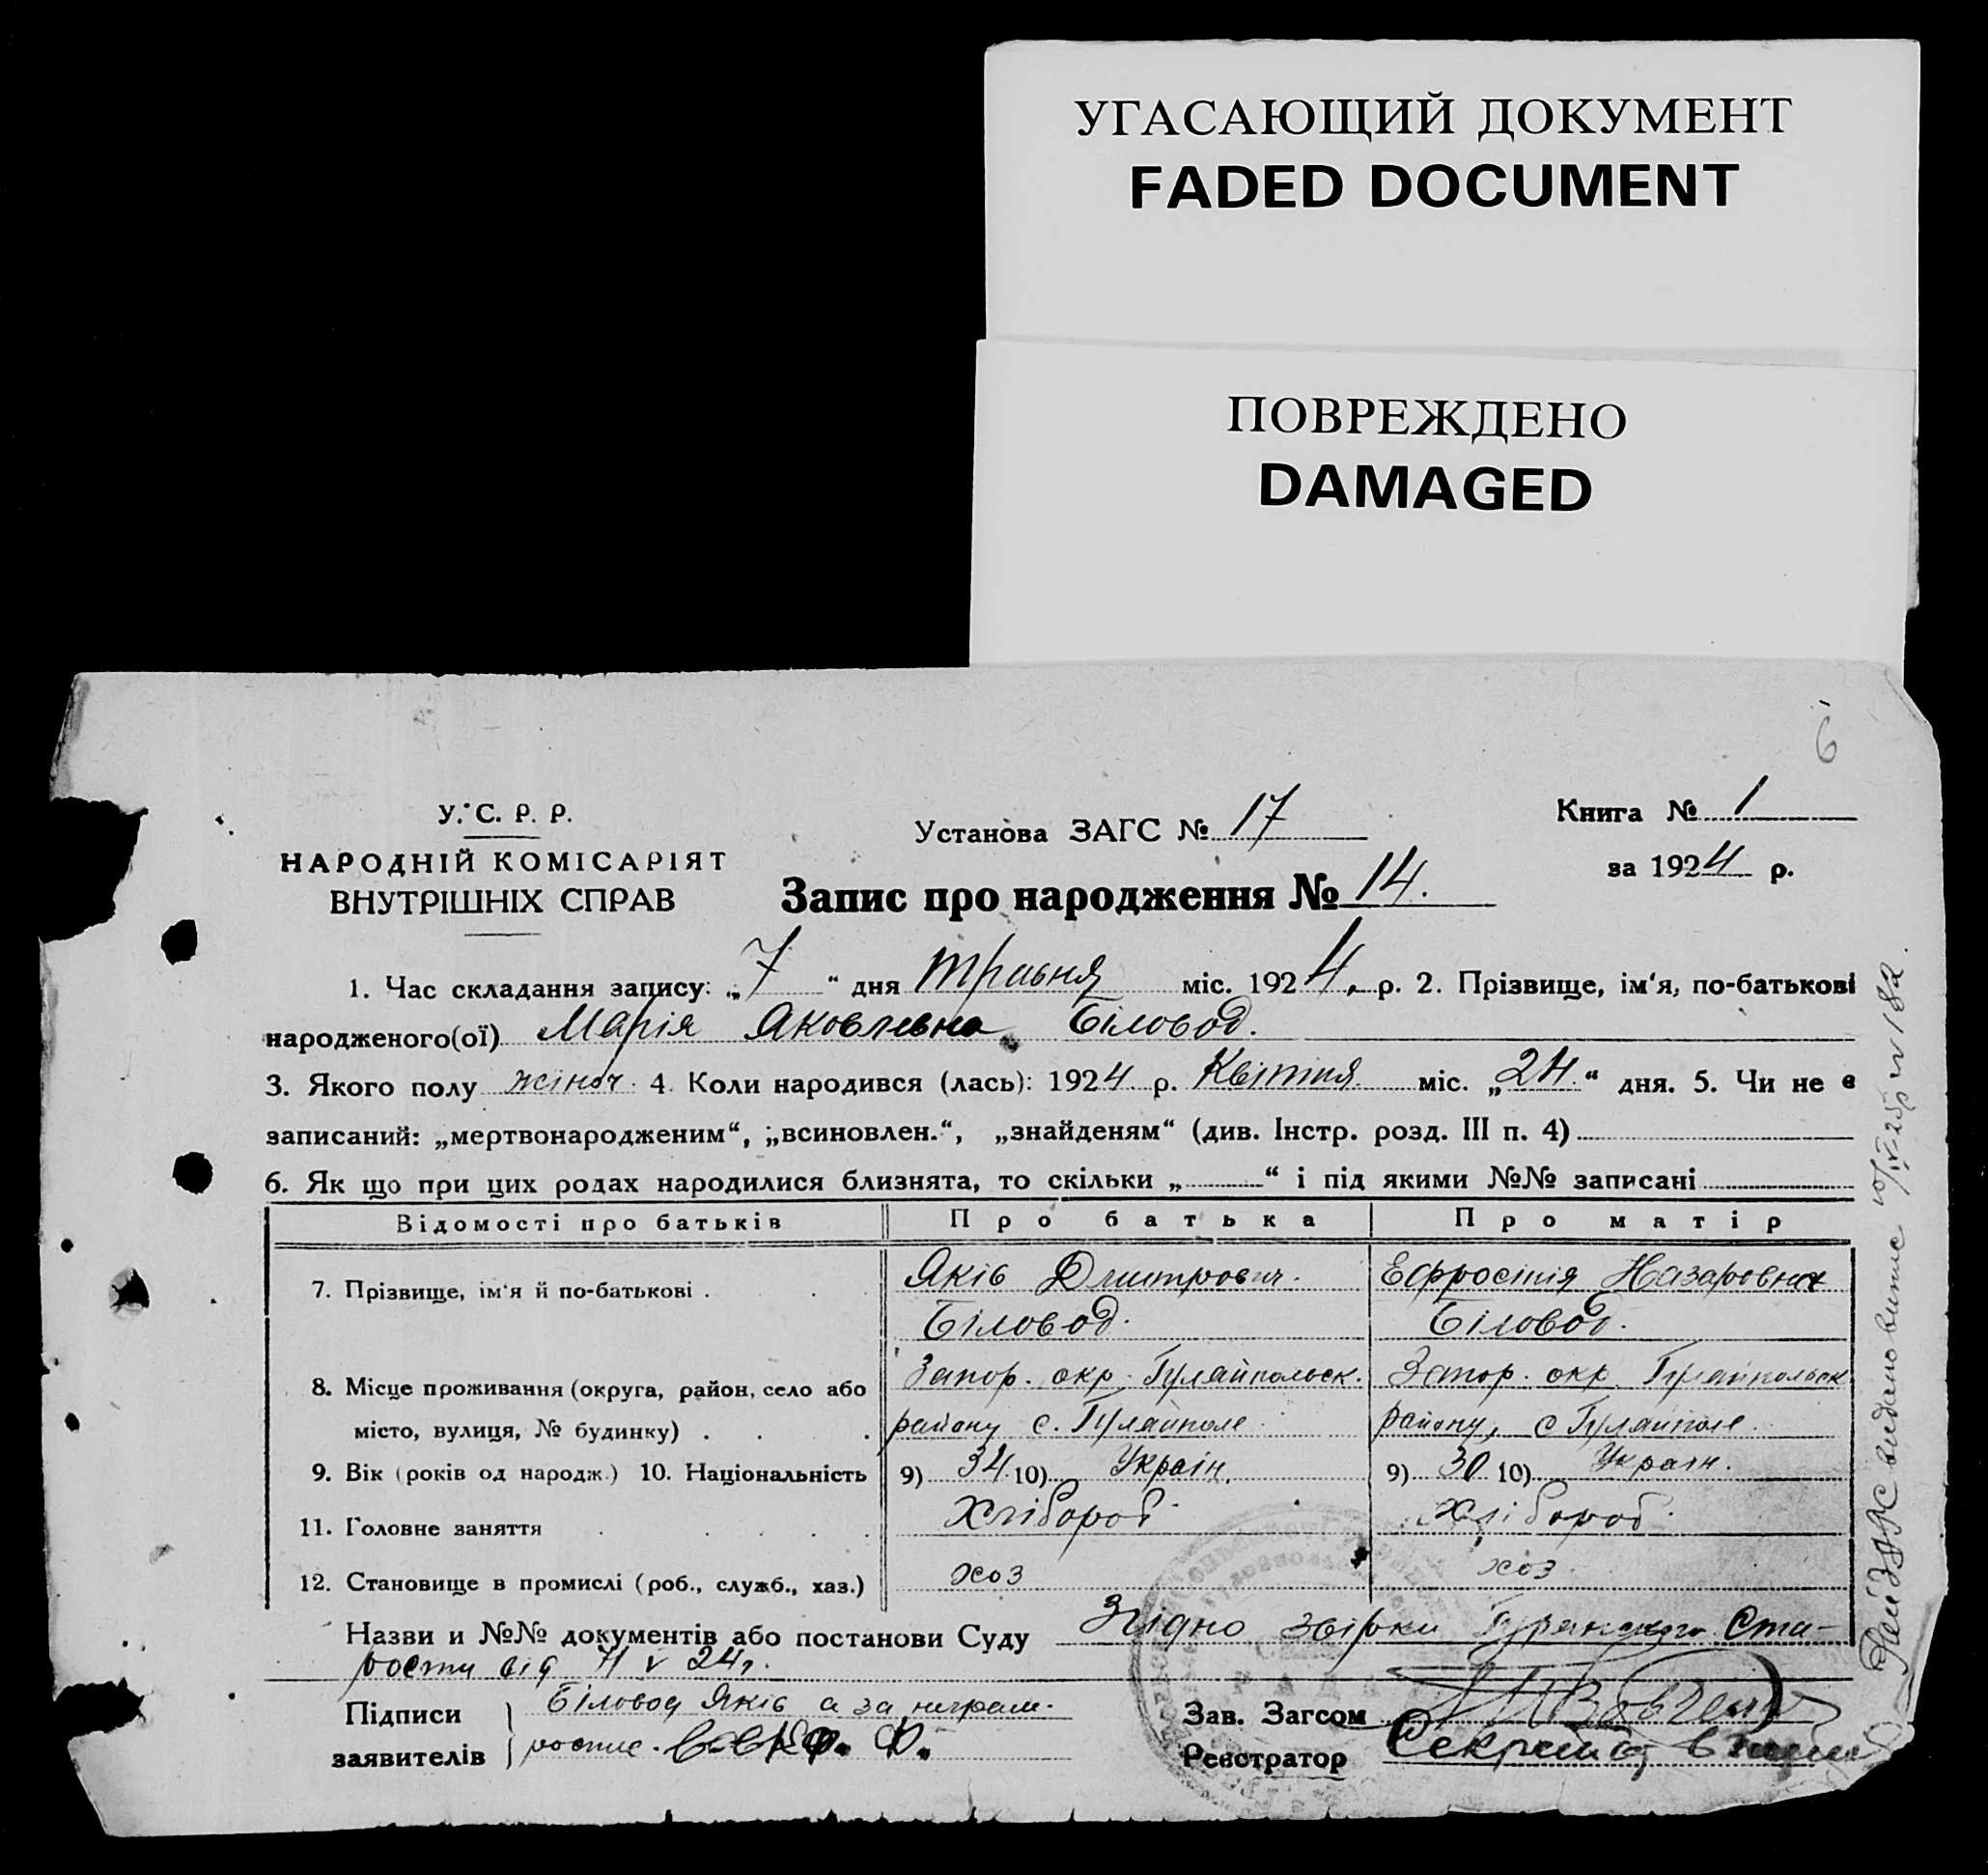 УГАСАЮЩИЙ ДОКУМЕНТ
FADED DOCUMENT
ПОВРЕЖДЕНО
DAMAGED
6
У. С. Р. Р.
НАРОДНІЙ КОМІСАРІЯТ
ВНУТРІШНІХ СПРАВ
Установа ЗАГС № 17
Книга № 1
за 1924 р.
Запис про народження № 14.
1. Час складання запису: „7“ дня травня міс. 1924, р. 2. Прізвище, ім‘я, по-батькові
народженого(ої) Марія Яковлевна Біловод.
3. Якого полу жіноч. 4. Коли народився (лась): 1924 р. Квітня міс. „24.“ дня. 5. Чи не є
записаний: „мертвонародженим“, „всиновлен.“, „знайденям“ (див. Інстр. розд. III п. 4)
6. Як що при цих родах народилися близнята, то скільки „ “ і під якими №№ записані
Відомості про батьків Про батька Про матір
7. Прізвище, ім‘я й по-батькові . Яків Дмитрович. Ефросінія Назаровна
Біловод. Біловод.
8. Місце проживання (округа, район, село або Запор. окр. Гуляйпольск. Запор. окр. Гуляйпольск
місто, вулиця, № будинку) . району с. Гуляйполе району, с Гуляйполе.
9. Вік (років од народж.) 10. Національність 9) 34. 10) Україн. 9) 30 10) Україн.
11. Головне заняття Хлібороб Хлібороб.
12. Становище в промислі (роб., служб., хаз.) хоз хоз.
Назви и №№ документів або постанови Суду Згідно Ста-
рости від V 24 г.
Підписи Біловод Яків а за неграм.
заявителів роспис.
Зав. Загсом
Реєстратор
видано